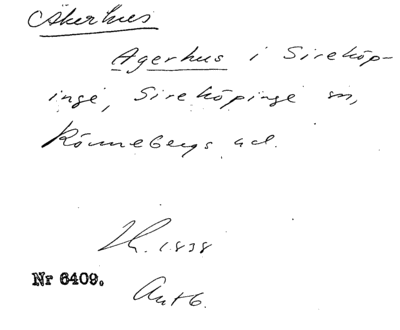 Åkerhus
Agerhus i Sireköp-
inge, Sireköpinge sn,
Rönnebergs hd.
1838
Nr 6409.